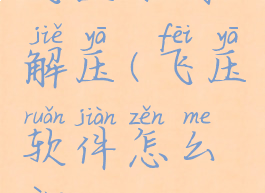 jiě yā fēi yā
解压(飞压
ruǎn jiàn zěn me
软件怎么